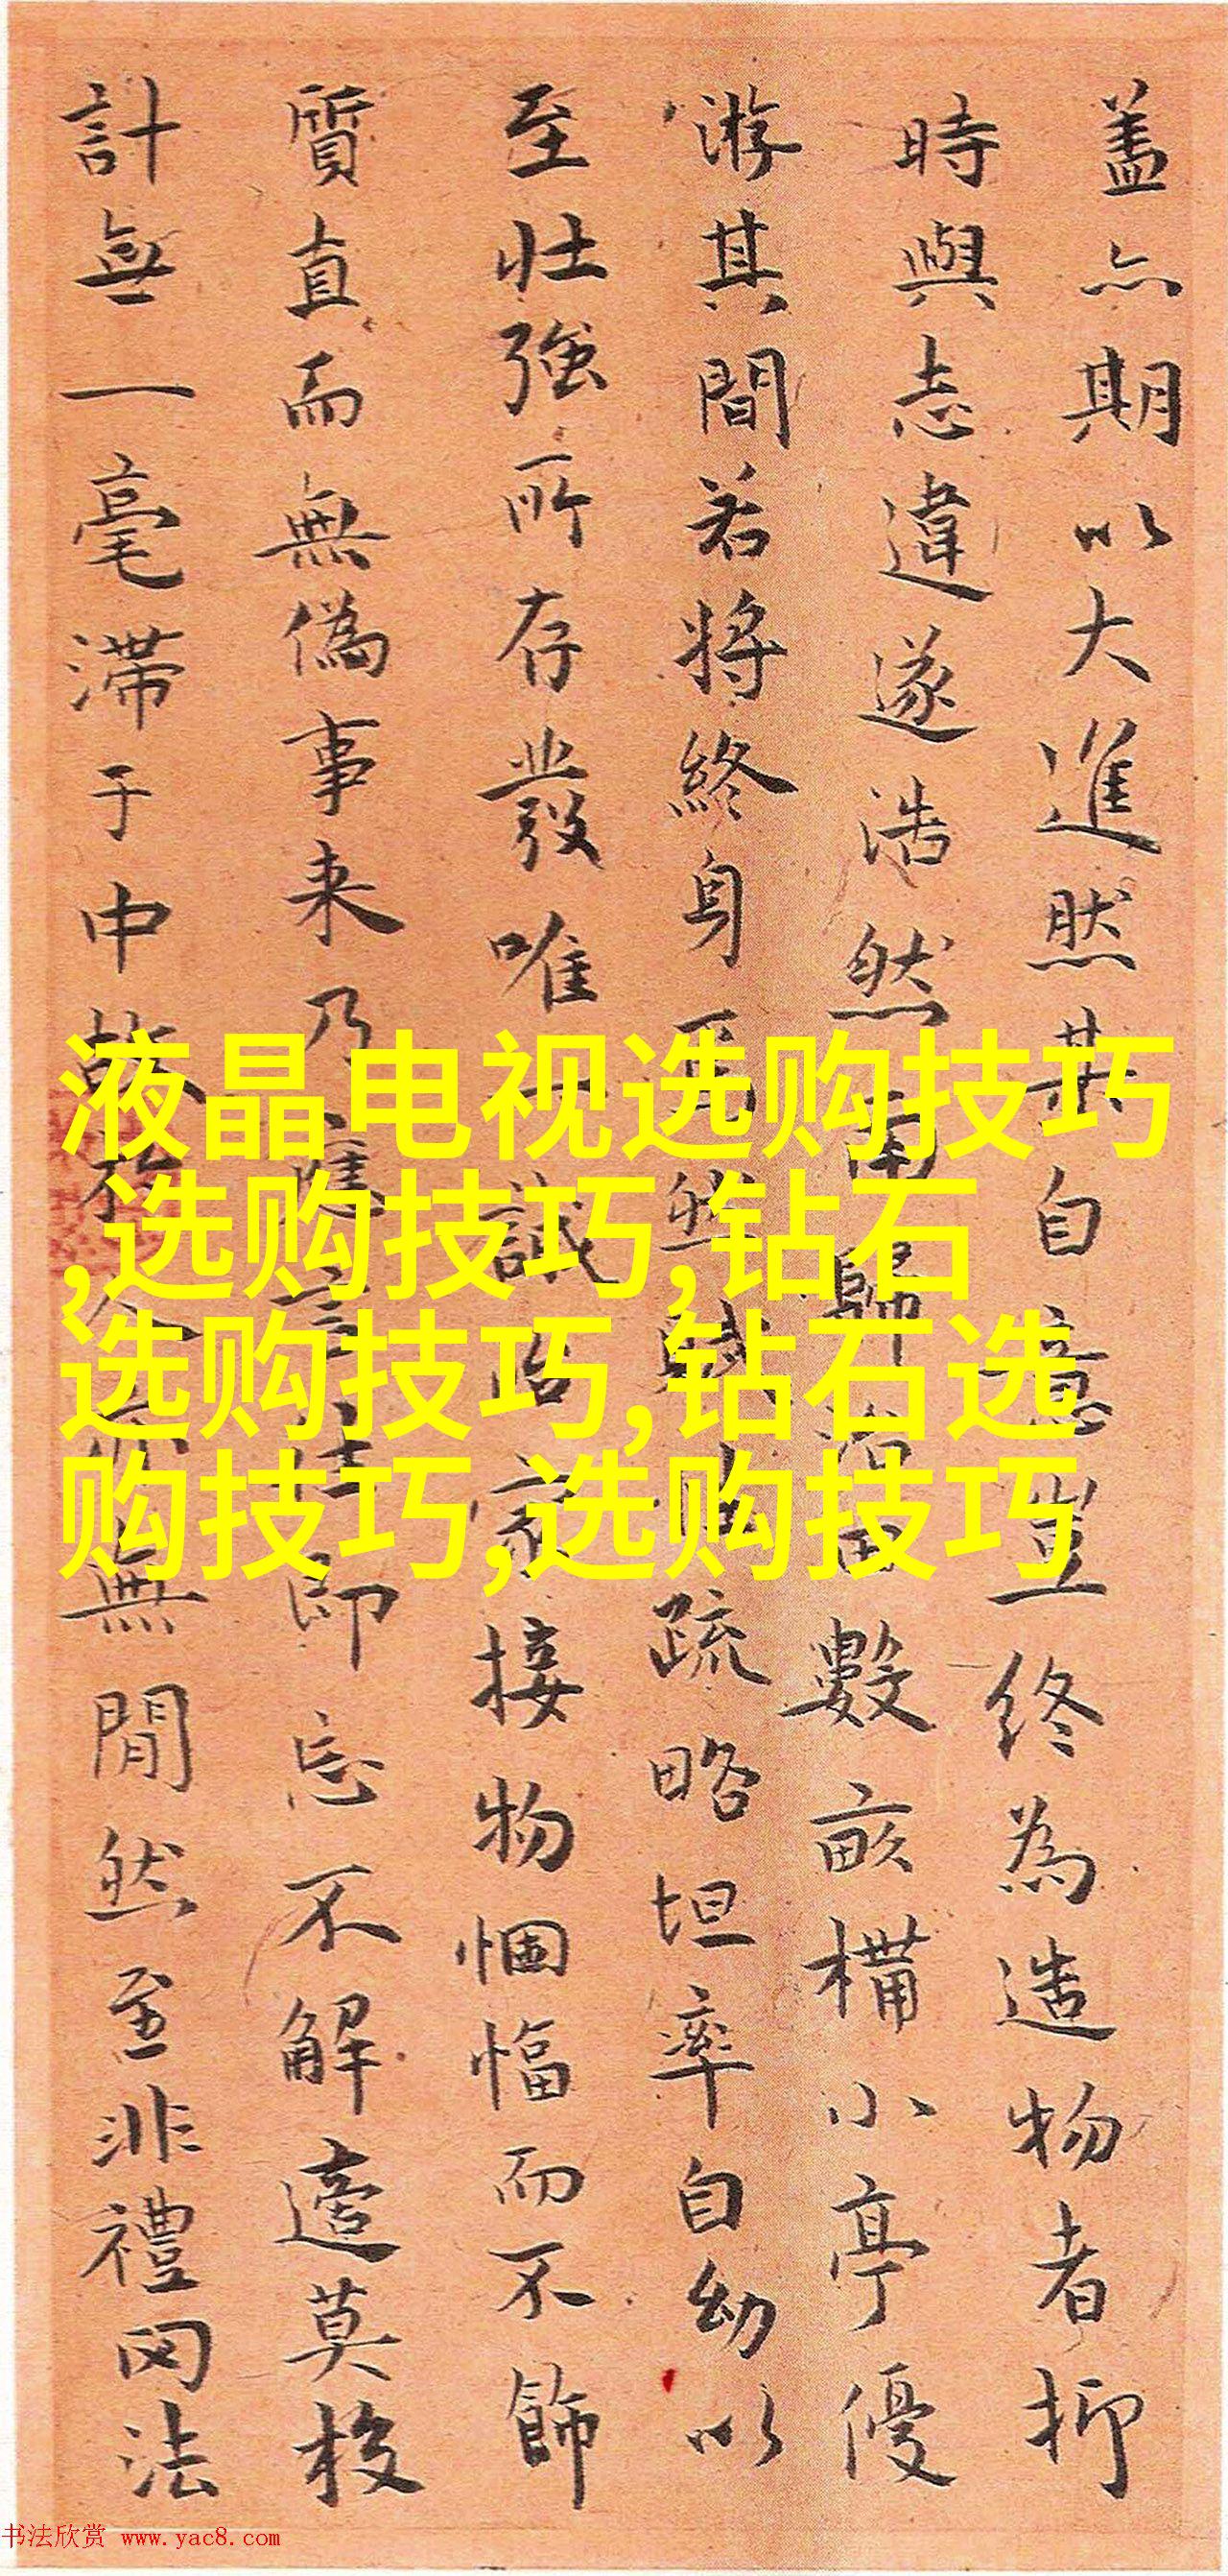 盖亦期以大進然其自意豈終為造物者抑
時與志違遂浩然南歸治田數畝構小亭優
游其間若将終身焉
疏略坦率自幼以
至壮強所存發唯一誠治家接物悃愊而不飾
質直而無偽事来乃應言
即忘不解邉莫校
計無一毫滞于中故
無間然至非禮罔法
液晶电视选购技巧
,选购技巧,钻石
选购技巧,钻石选
购技巧,选购技巧
书法欣赏 www.yac8.com